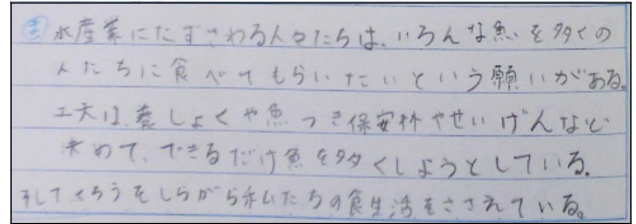 ま 水産業にたずさわる人々たちは、いろんな魚を多くの
人たちに食べてもらいたいという願いがある。
工夫は、養しょくや魚つき保安林やせいげんなど
決めて、できるだけ魚を多くしようとしている。
そしてくろうをしながら私たちの食生活をささえている。